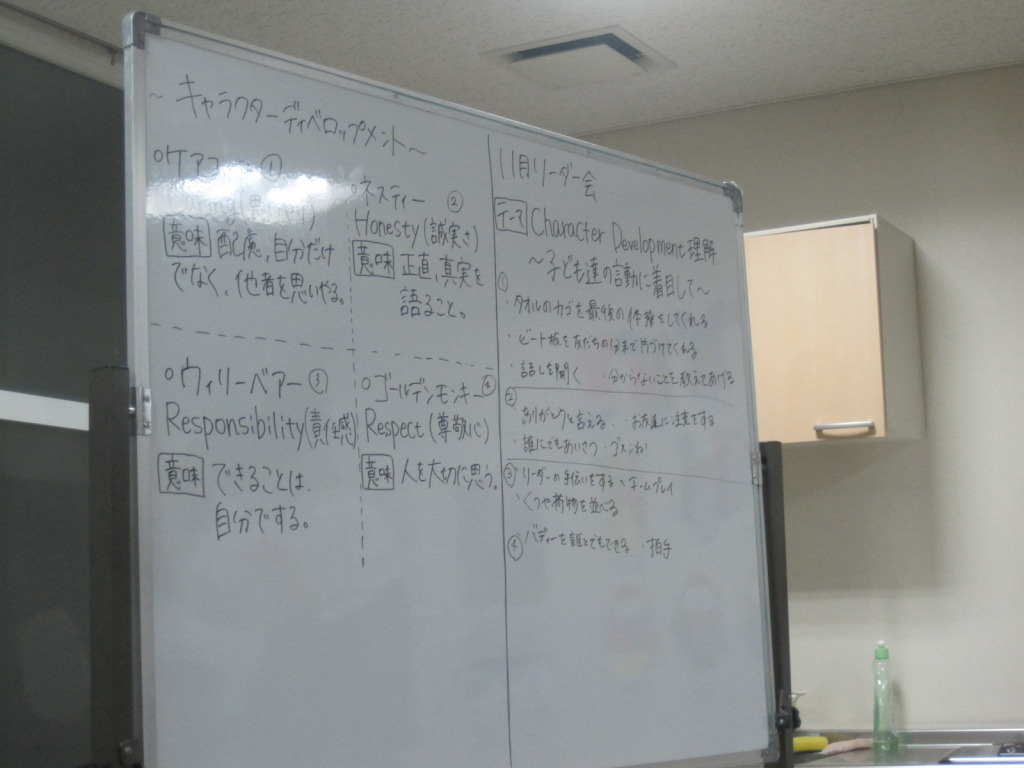 ～キャラクターディベロップメント～
○ケアコ ①
意味 配慮,自分だけ
でなく、他者を思いやる。
○ネスティー ②
Honesty(誠実さ)
意味 正直,真実を
語ること。
○ウィリーベアー③
Responsibility(責任感)
意味 できることは、
自分でする。
○ゴールデンモンキー④
Respect(尊敬心)
意味 人を大切に思う。
11月リーダー会
テーマ Character Development理解
～子ども達の言動に着目して～
①
・タオルのカゴを最後の体操をしてくれる
・ビート板を友だちの分まで片づけてくれる
・話しを聞く ・分からないことを教えてあげる
②
ありがとうと言える ・お友達に注意する
・誰にでもあいさつ ・ゴメンね
③ リーダーの手伝いをする ・チームプレイ
・くつや荷物を並べる
④ バディーを誰とでもできる ・拍手